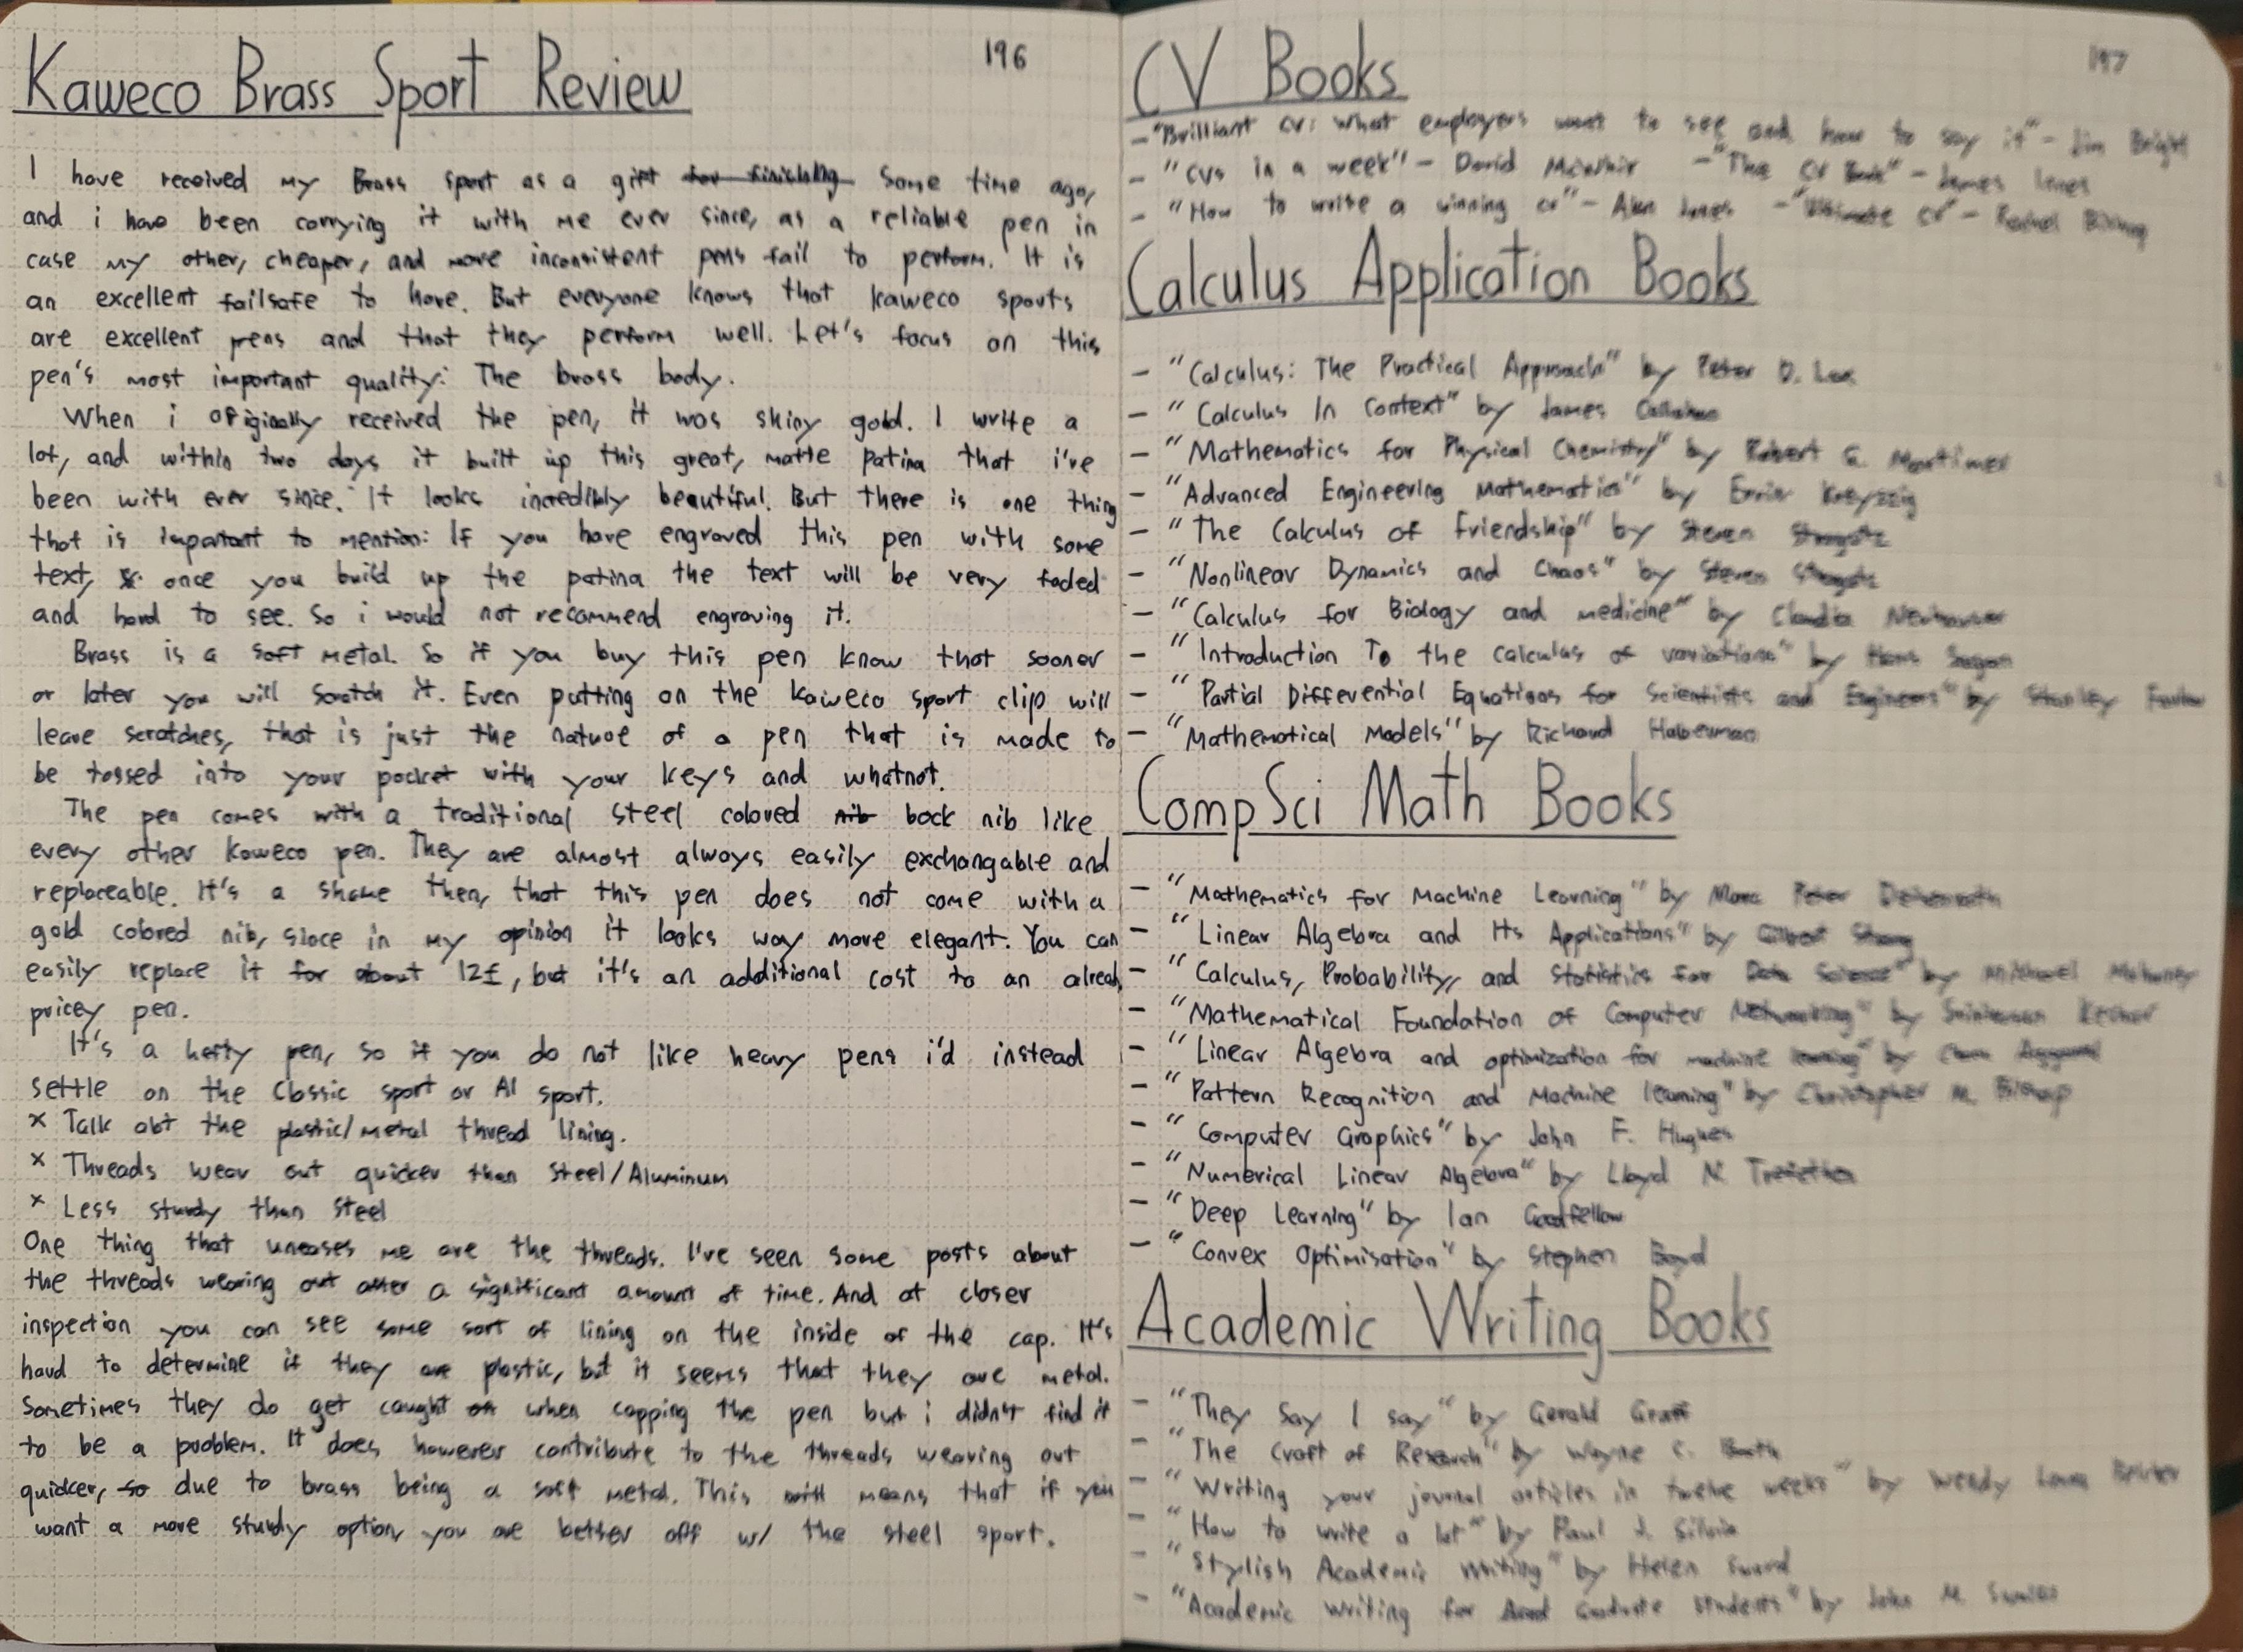 Kaweco Brass Sport Review
196
I have received my Brass sport as a gift for finishing some time ago,
and i have been carrying it with me ever since, as a reliable pen in
case my other, cheaper, and more inconsistent pens fail to perform. It is
an excellent failsafe to have. But everyone knows that kaweco sports
are excellent pens and that they perform well. Let's focus on this
pen's most important quality: The brass body.
When i originally received the pen, it was shiny gold. I write a
lot, and within two days it built up this great, matte patina that i've
been with ever since. It looks incredibly beautiful. But there is one thing
that is important to mention: If you have engraved this pen with some
text, once you build up the patina the text will be very faded
and hard to see. So i would not recommend engraving it.
Brass is a soft metal. So if you buy this pen know that sooner
or later you will scratch it. Even putting on the kaweco sport clip will
leave scratches, that is just the nature of a pen that is made to
be tossed into your pocket with your keys and whatnot.
The pen comes with a traditional steel colored nib bock nib like
every other kaweco pen. They are almost always easily exchangable and
replaceable. It's a shame then, that this pen does not come with a
gold colored nib, since in my opinion it looks way more elegant. You can
easily replace it for about 12£, but it's an additional cost to an alread
pricey pen.
It's a hefty pen, so if you do not like heavy pens i'd instead
settle on the Classic sport or Al sport.
x Talk abt the plastic/metal thread lining.
x Threads wear out quicker than Steel/Aluminum
x Less sturdy than Steel
One thing that uneases me are the threads. I've seen some posts about
the threads wearing out after a significant amount of time. And at closer
inspection you can see some sort of lining on the inside of the cap. It's
hard to determine if they are plastic, but it seems that they are metal.
Sometimes they do get caught when capping the pen but i didn't find it
to be a problem. It does however contribute to the threads wearing out
quicker, so due to brass being a soft metal. This will means that if you
want a more sturdy option, you are better off w/ the steel sport.
CV Books
197
- "Brilliant CV: What employers want to see and how to say it" - Jim Bright
- "CVs in a week" - David - "The CV Book" - James Innes
- "How to write a winning cv" - Alan Jones - "Ultimate CV" - Rachel
Calculus Application Books
- "Calculus: The Practical Approach" by Peter D. Lax
- "Calculus In Context" by James Callahan
- "Mathematics for Physical Chemistry" by Robert G. Mortimer
- "Advanced Engineering Mathematics" by Erwin Kreyszig
- "The Calculus of Friendship" by Steven Strogatz
- "Nonlinear Dynamics and Chaos" by Steven Strogatz
- "Calculus for Biology and medicine" by Claudia Neuhauser
- "Introduction To the calculus of variations" by Hans Sagan
- "Partial Differential Equations for Scientists and Engineers" by Stanley Farlow
- "Mathematical Models" by Richard Haberman
CompSci Math Books
- "Mathematics for Machine Learning" by Marc Peter Deisenroth
- "Linear Algebra and Its Applications" by Gilbert Strang
- "Calculus, Probability, and Statistics for Data Science" by Michael Mahoney
- "Mathematical Foundation of Computer Networking" by Srinivasan Keshav
- "Linear Algebra and optimization for machine learning" by Aggarwal
- "Pattern Recognition and Machine learning" by Christopher M. Bishop
- "Computer Graphics" by John F. Hughes
- "Numerical Linear Algebra" by Lloyd N. Trefethen
- "Deep Learning" by Ian Goodfellow
- "Convex Optimisation" by Stephen Boyd
Academic Writing Books
- "They Say I say" by Gerald Graff
- "The Craft of Research" by Wayne C. Booth
- "Writing your journal articles in twelve weeks" by Wendy Laura Belcher
- "How to write a lot" by Paul J. Silvia
- "Stylish Academic Writing" by Helen Sword
- "Academic Writing for Graduate Students" by John M. Swales